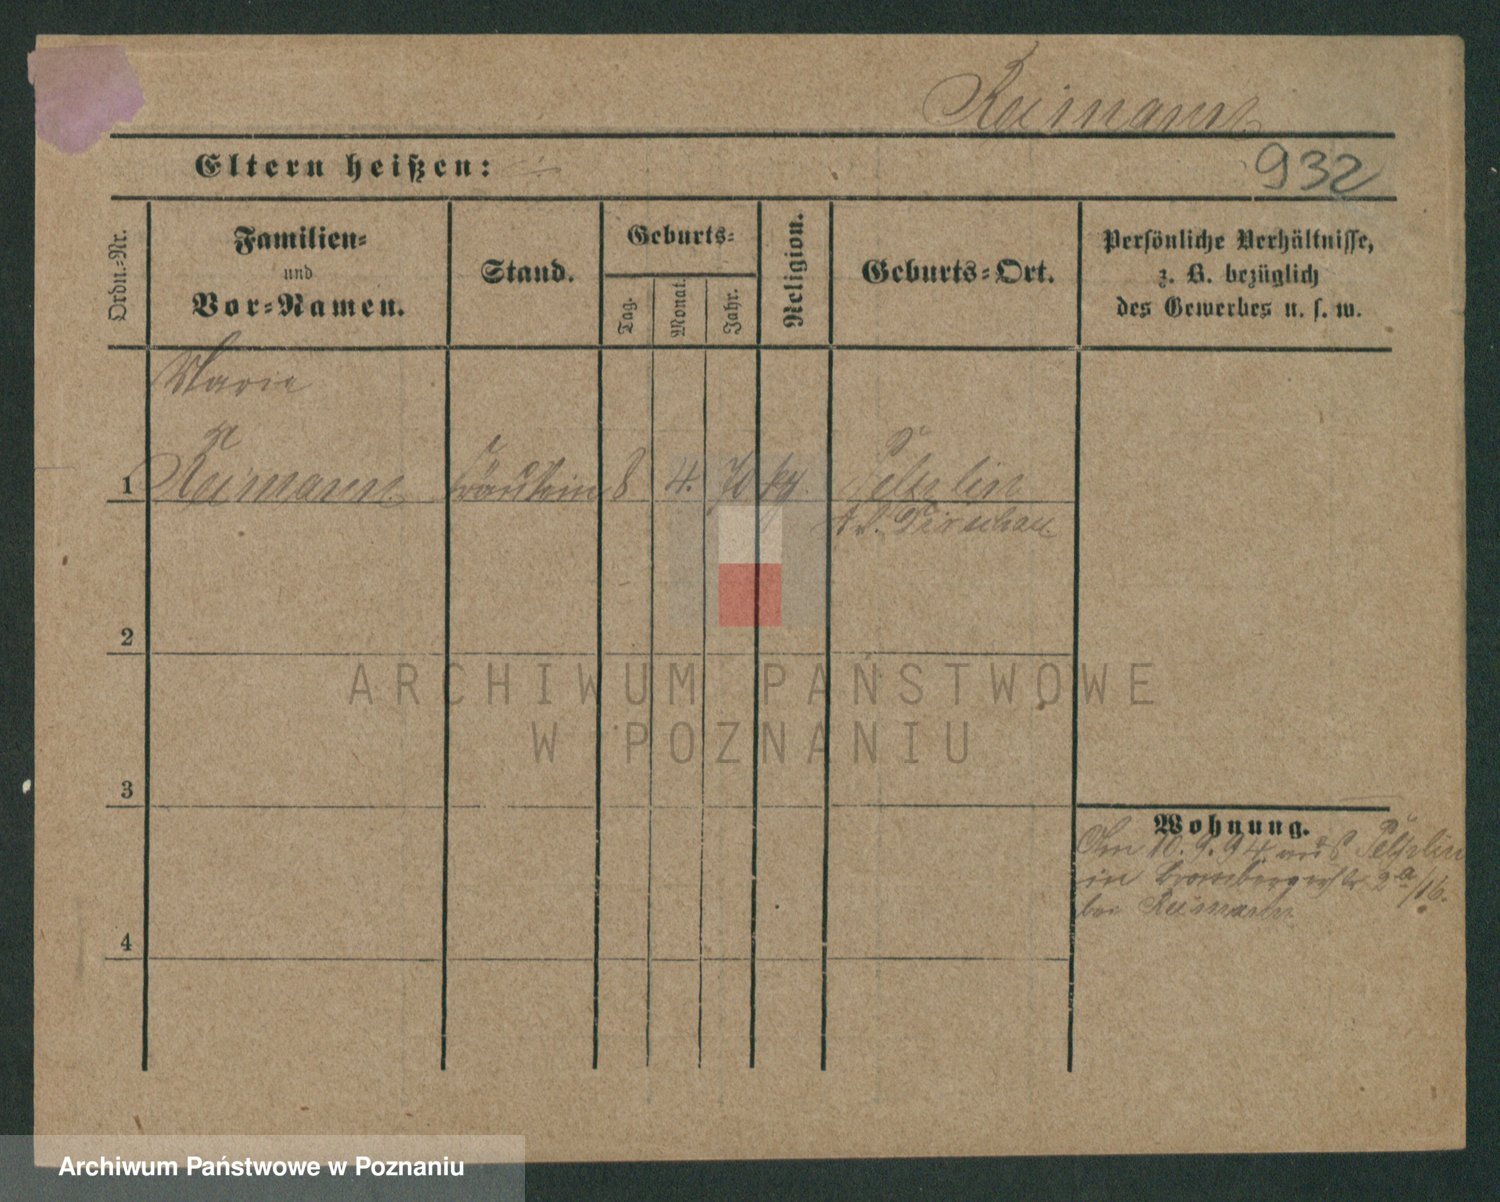 Reimann
Eltern heißen:
932
Ordn.-Nr.
Familien-
und
Vor-Namen.
Stand.
Geburts-
Tag.
Monat.
Jahr.
Religion.
Geburts-Ort.
Persönliche Verhältnisse,
z. B. bezüglich
des Gewerbes u. s. w.
Marie
1 Reimann Fräulein 8 4. 70 Pelplin
Kr. Dirschau
2
3
4
Wohnung.
Am 10. 9. 94 aus Pelplin
in Brombergerstr 2a/16.
bei Reimann
ARCHIWUM PAŃSTWOWE
W POZNANIU
Archiwum Państwowe w Poznaniu